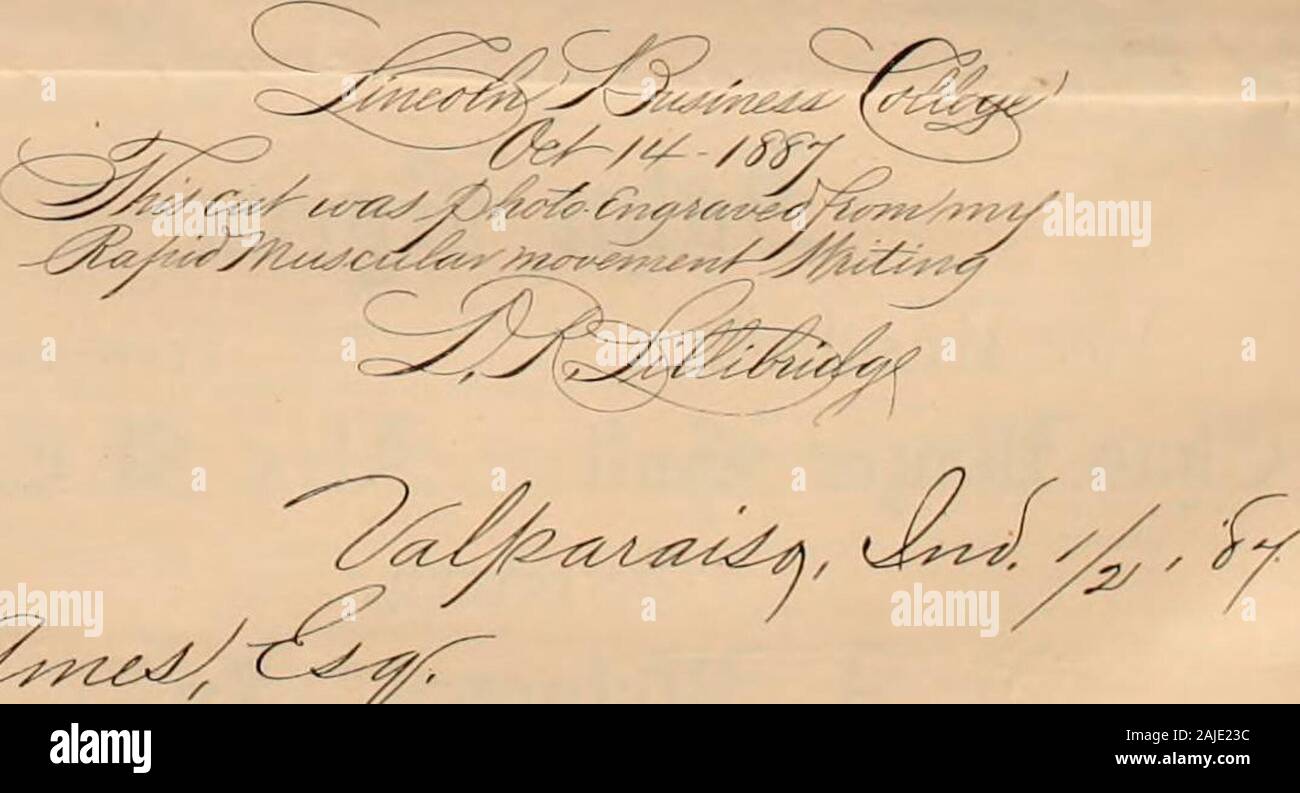 Lincoln Business College
Oct 14 - 1887
This cut was photo-Engraved from my
Rapid Muscular movement Writing
D. R. Lillibridge
Valparaiso, Ind. 1/2, '87.
Ames, Esq.
a
alamy
Image ID: 2AJE23C
www.alamy.com